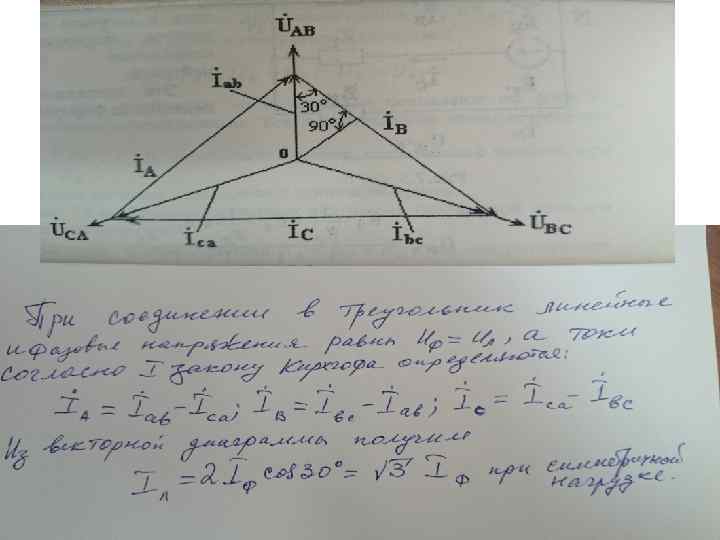 U̇AB
İab
30°
90°
İB
0
İA
U̇CA
İca
İC
İbc
U̇BC
При соединении в треугольник линейные
и фазовые напряжения равны Uф = Uл, а токи
согласно I закону Кирхгофа определяются:
İA = İab - İca; İB = İbc - İab; İc = İca - İBC
Из векторной диаграммы получим
Iл = 2 Iф cos 30° = √3 Iф при симметричной
нагрузке.